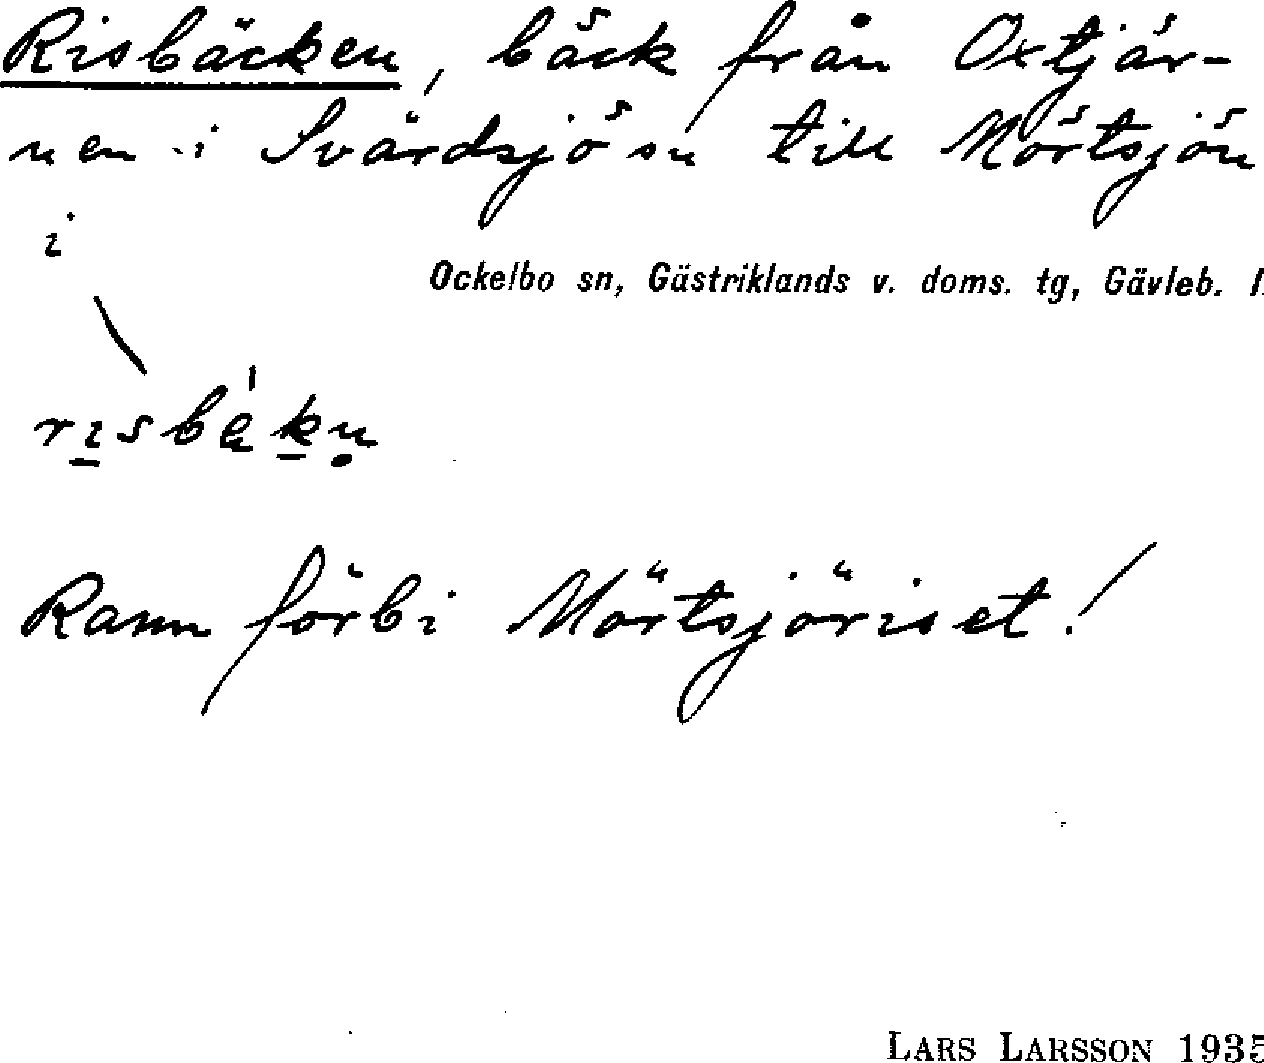 Risbäcken, bäck från Oxtjär-
nen i Svärdsjö sn till Mörtsjön
i
Ockelbo sn, Gästriklands v. doms. tg, Gävleb. l.
risbäkn
Rann förbi Mörtsjöriset!
LARS LARSSON 1935